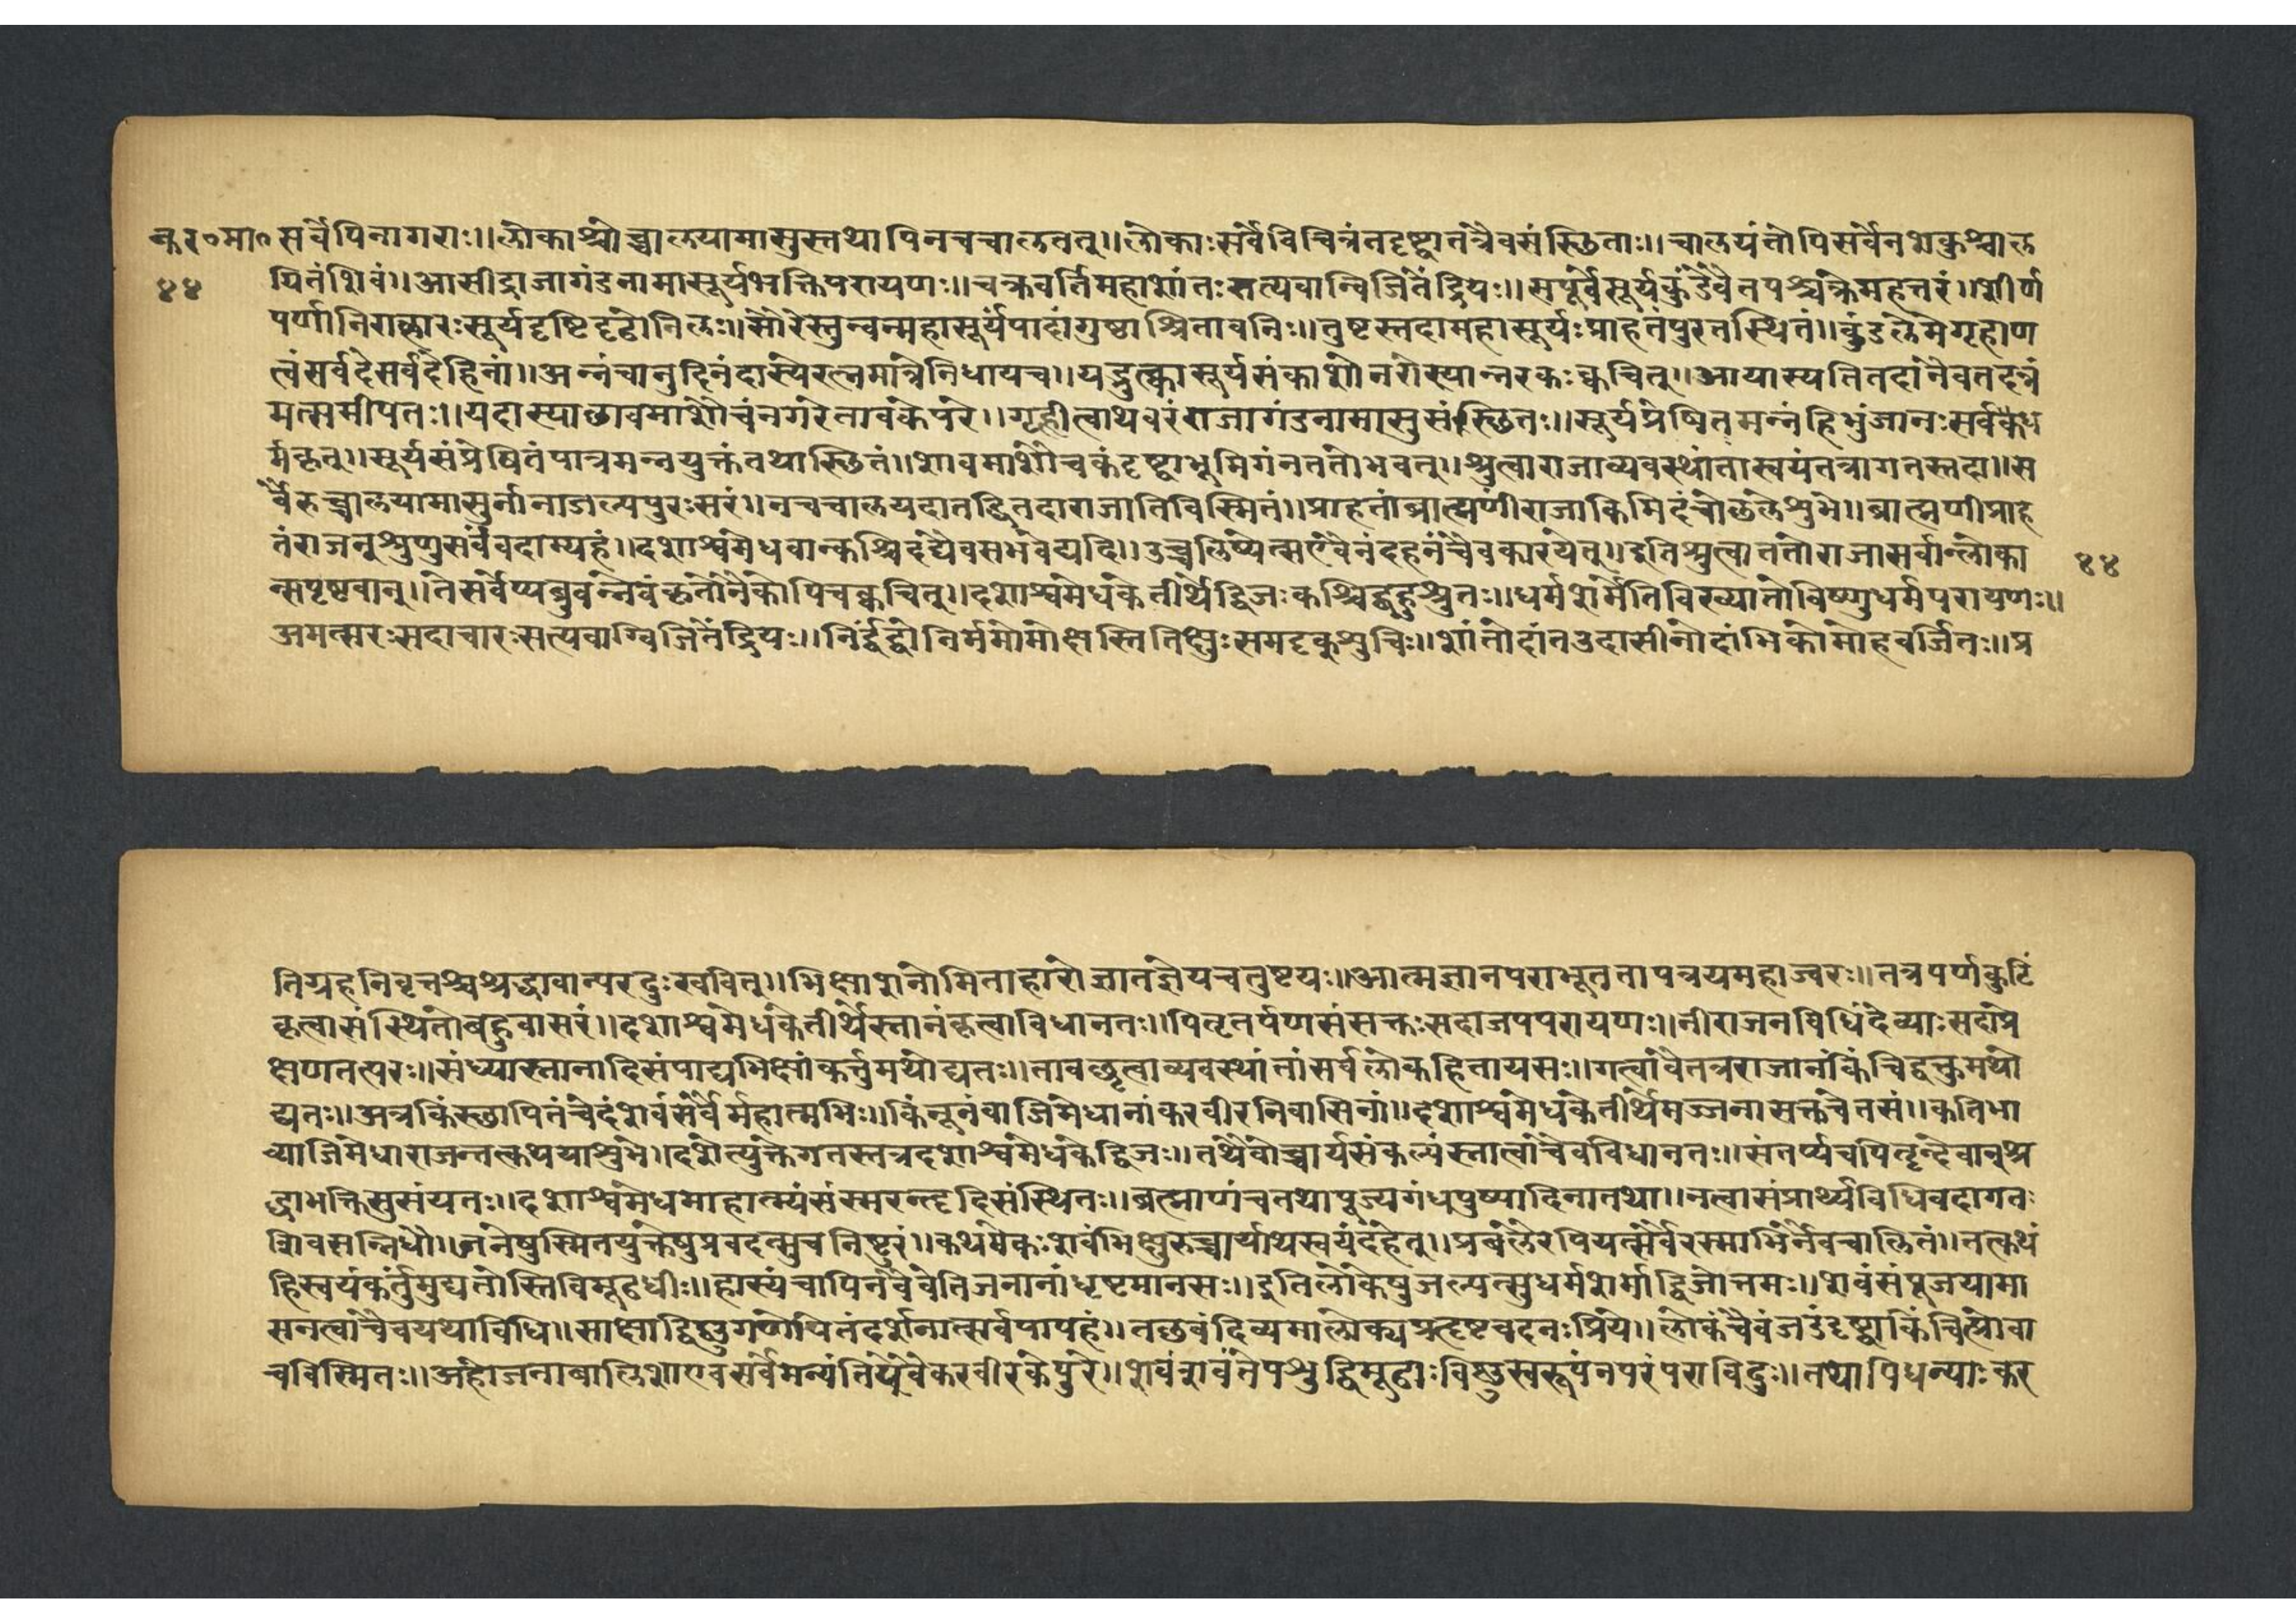 कर०मा० सर्वेपिनागराः॥लोकाश्चोच्चालयामासुस्तथापिनचचालतत्॥लोकाःसर्वेविचित्रंतदृष्ट्वातत्रैवसंस्छिताः॥चालयंतोपिसर्वेनशेकुश्चाल
४४ यितंशिवं॥आसीद्राजागंडनामासूर्यभक्तिपरायणः॥चक्रवर्तिमहाशांतःसत्यवान्विजितेंद्रियः॥सपूर्वेसूर्यकुंडेवैतपश्चक्रेमहत्तरं॥शीर्ण
पर्णानिराहारःसूर्यदृष्टिदृढोनिलः॥सौरेस्तुन्वन्महासूर्यपादांगुष्ठाश्रितावनिः॥तुष्टस्तदामहासूर्यःप्राहतंपुरतस्थितं॥कुंडलेमेगृहाण
त्वंसर्वदेसर्वदेहिनां॥अन्नंचानुदिनंदास्येरत्नमात्रेनिधायच॥यद्भुत्कासूर्यसंकाशोनरोस्यान्नरकःक्वचित्॥आयास्यतितदांनैवतदन्नं
मत्समीपतः॥यदास्याछावमाशौचंनगरेतावकेपरे॥गृहीत्वाथवरंराजागंडनामासुसंस्छितः॥सूर्यप्रेषितमन्नंहिभुंजानःसर्वकध
र्मकृत्॥सूर्यसंप्रेषितंपात्रमन्नयुक्तंतथास्छितं॥शावमाशौचकंदृष्ट्वाभूमिगंनततोभवत्॥श्रुत्वाराजाव्यवस्थांतास्वयंतत्रागतस्तदा॥स
र्वेरुच्चालयामासुर्नानाजल्पपुरःसरं॥नचचालयदातद्धितदाराजातिविस्मितं॥प्राहतांब्राह्मणींराजाकिमिदंचोछलेशुभे॥ब्राह्मणीप्राह
तंराजन्शृणुसर्वंवदाम्यहं॥दशाश्वमेधवान्कश्चिदंद्यैवसभवेद्यदि॥उच्चलिष्यत्सएवैनंदहनंचैवकारयेत्॥इतिश्रुत्वाततोराजासर्वान्लोका ४४
न्सपृष्टवान्॥तेसर्वेप्यब्रुवन्नैवंकृतोनैकोपिचक्वचित्॥दशाश्वमेधकेतीर्थेद्विजःकश्चिद्बहुश्रुतः॥धर्मशर्मेतिविख्यातोविष्णुधर्मपरायणः॥
अमत्सरःसदाचारःसत्यवाग्विजितेंद्रियः॥निर्द्वंद्वोनिर्ममोमोक्षस्तितिक्षुःसमदृक्शुचिः॥शांतोदांतउदासीनोदांभिकोमोहवर्जितः॥प्र
तिग्रहनिवृत्तश्चश्रद्धावान्परदुःखवित्॥भिक्षाशनोमिताहारोज्ञातज्ञेयचतुष्टयः॥आत्मज्ञानपराभूततापत्रयमहाज्वरः॥तत्रपर्णकुटिं
कृत्वासंस्थितोबहुवासरं॥दशाश्वमेधकेतीर्थेस्नानंकृत्वाविधानतः॥पितृतर्पणसंसक्तःसदाजपपरायणः॥नीराजनविधिंदेव्याःसदाप्रे
क्षणतत्परः॥संध्यास्नानादिसंपाद्यभिक्षांकर्त्तुमथोद्यतः॥तावछ्रुत्वाव्यवस्थांतांसर्वलोकहितायसः॥गत्वावैतत्रराजानंकिंचिद्वक्तुमथो
द्यतः॥अत्रकिंस्छापितंचेदंशैवंसर्वैर्महात्मभिः॥किंनूनंवाजिमेधानांकरवीरनिवासिनां॥दशाश्वमेधकेतीर्थेमज्जनासक्तचेतसं॥कतिभा
व्याजिमेधाराजन्तत्कथयाशुभे॥दशेत्युक्तेगतस्तत्रदशाश्वमेधकेद्विजः॥तथैवोच्चार्यसंकल्पंस्नात्वाचैवविधानतः॥संतर्प्यचपितॄन्देवान्श्र
द्धाभक्तिसुसंयतः॥दशाश्वमेधमाहात्म्यंसंस्मरन्हृदिसंस्थितः॥ब्रह्माणंचतथापूज्यगंधपुष्पादिनातथा॥नत्वासंप्रार्थ्यविधिवदागतः
शिवसन्निधौ॥जनेषुस्मितयुक्तेषुप्रवदत्सुचनिष्टुरं॥कथमेकःशैवंभिक्षुरुच्चार्याथस्वयंदहेत्॥प्रबलैरपियत्सर्वैरस्माभिर्नैवचालितं॥तत्कथं
हिस्वयंकर्तुमुद्यतोस्तिविमूढधीः॥हास्यंचापिनवैवेतिजनानांधृष्टमानसः॥इतिलोकेषुजल्पत्सुधर्मशर्माद्विजोत्तमः॥शैवंसंपूजयामा
सनत्वाचैवयथाविधि॥साक्षाद्विष्णुगणोपितंदर्शनात्सर्वपापहं॥तछवंदिव्यमालोक्यप्रहृष्टवदनःप्रिये॥लोकंचैवंजडंदृष्ट्वाकिंचित्प्रोवा
चविस्मितः॥अहोजनाबालिशाएवसर्वेमन्यंतियेवैकरवीरकेपुरे॥शैवंशवंतेपशुद्विमूढाःविष्णुस्वरूपंनपरंपराविदुः॥तथापिधन्याःकर